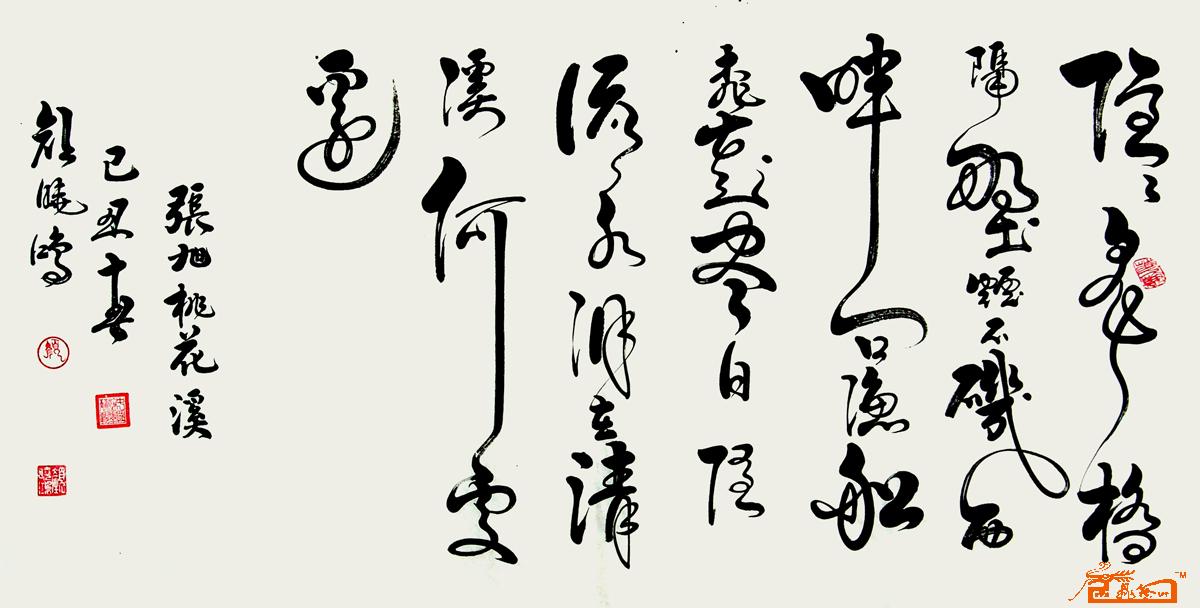 隱〻飛橋
隔野煙石磯西
畔問漁船
桃花盡日隨
流水洞在清
溪何處
邊
張旭桃花溪
己丑春
曉鴻